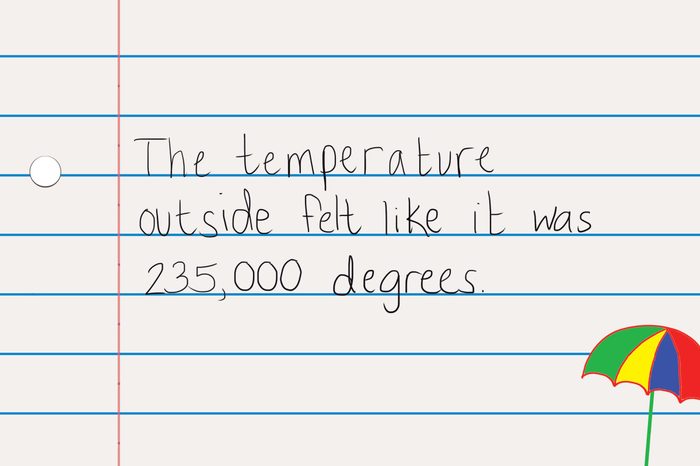 The temperature
outside felt like it was
235,000 degrees.